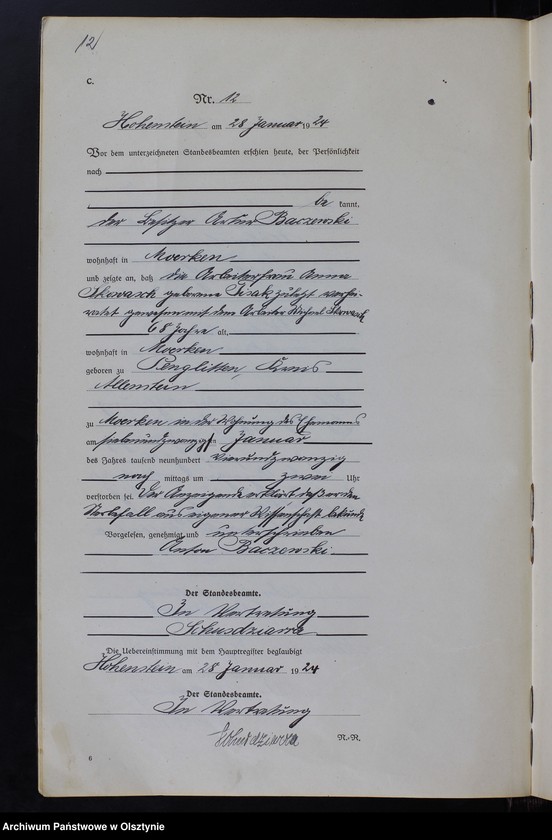 12
C.
Nr. 12
Hohenstein am 28 Januar 1924
Vor dem unterzeichneten Standesbeamten erschien heute, der Persönlichkeit
nach
be kannt,
der Besitzer Baczewski
wohnhaft in Moerken
und zeigte an, daß die Arbeiterfrau Anna
geborene zuletzt verhei-
ratet gewesen mit dem Arbeiter Michael
68 Jahre alt,
wohnhaft in Moerken
geboren zu Penglitten, Kreis
Allenstein
zu Moerken in der Wohnung des Ehemanns
am siebenundzwanzigsten Januar
des Jahres tausend neunhundert vierundzwanzig
nach mittags um zwei Uhr
verstorben sei. Der Anzeigende erklärt daß er den
Sterbefall aus eigener Wissenschaft bekunde
Vorgelesen, genehmigt und unterschrieben
Anton Baczewski
Der Standesbeamte.
In Vertretung
Der Uebereinstimmung mit dem Hauptregister beglaubigt
Hohenstein am 28 Januar 1924
Der Standesbeamte.
In Vertretung
N.-R.
6
Archiwum Państwowe w Olsztynie